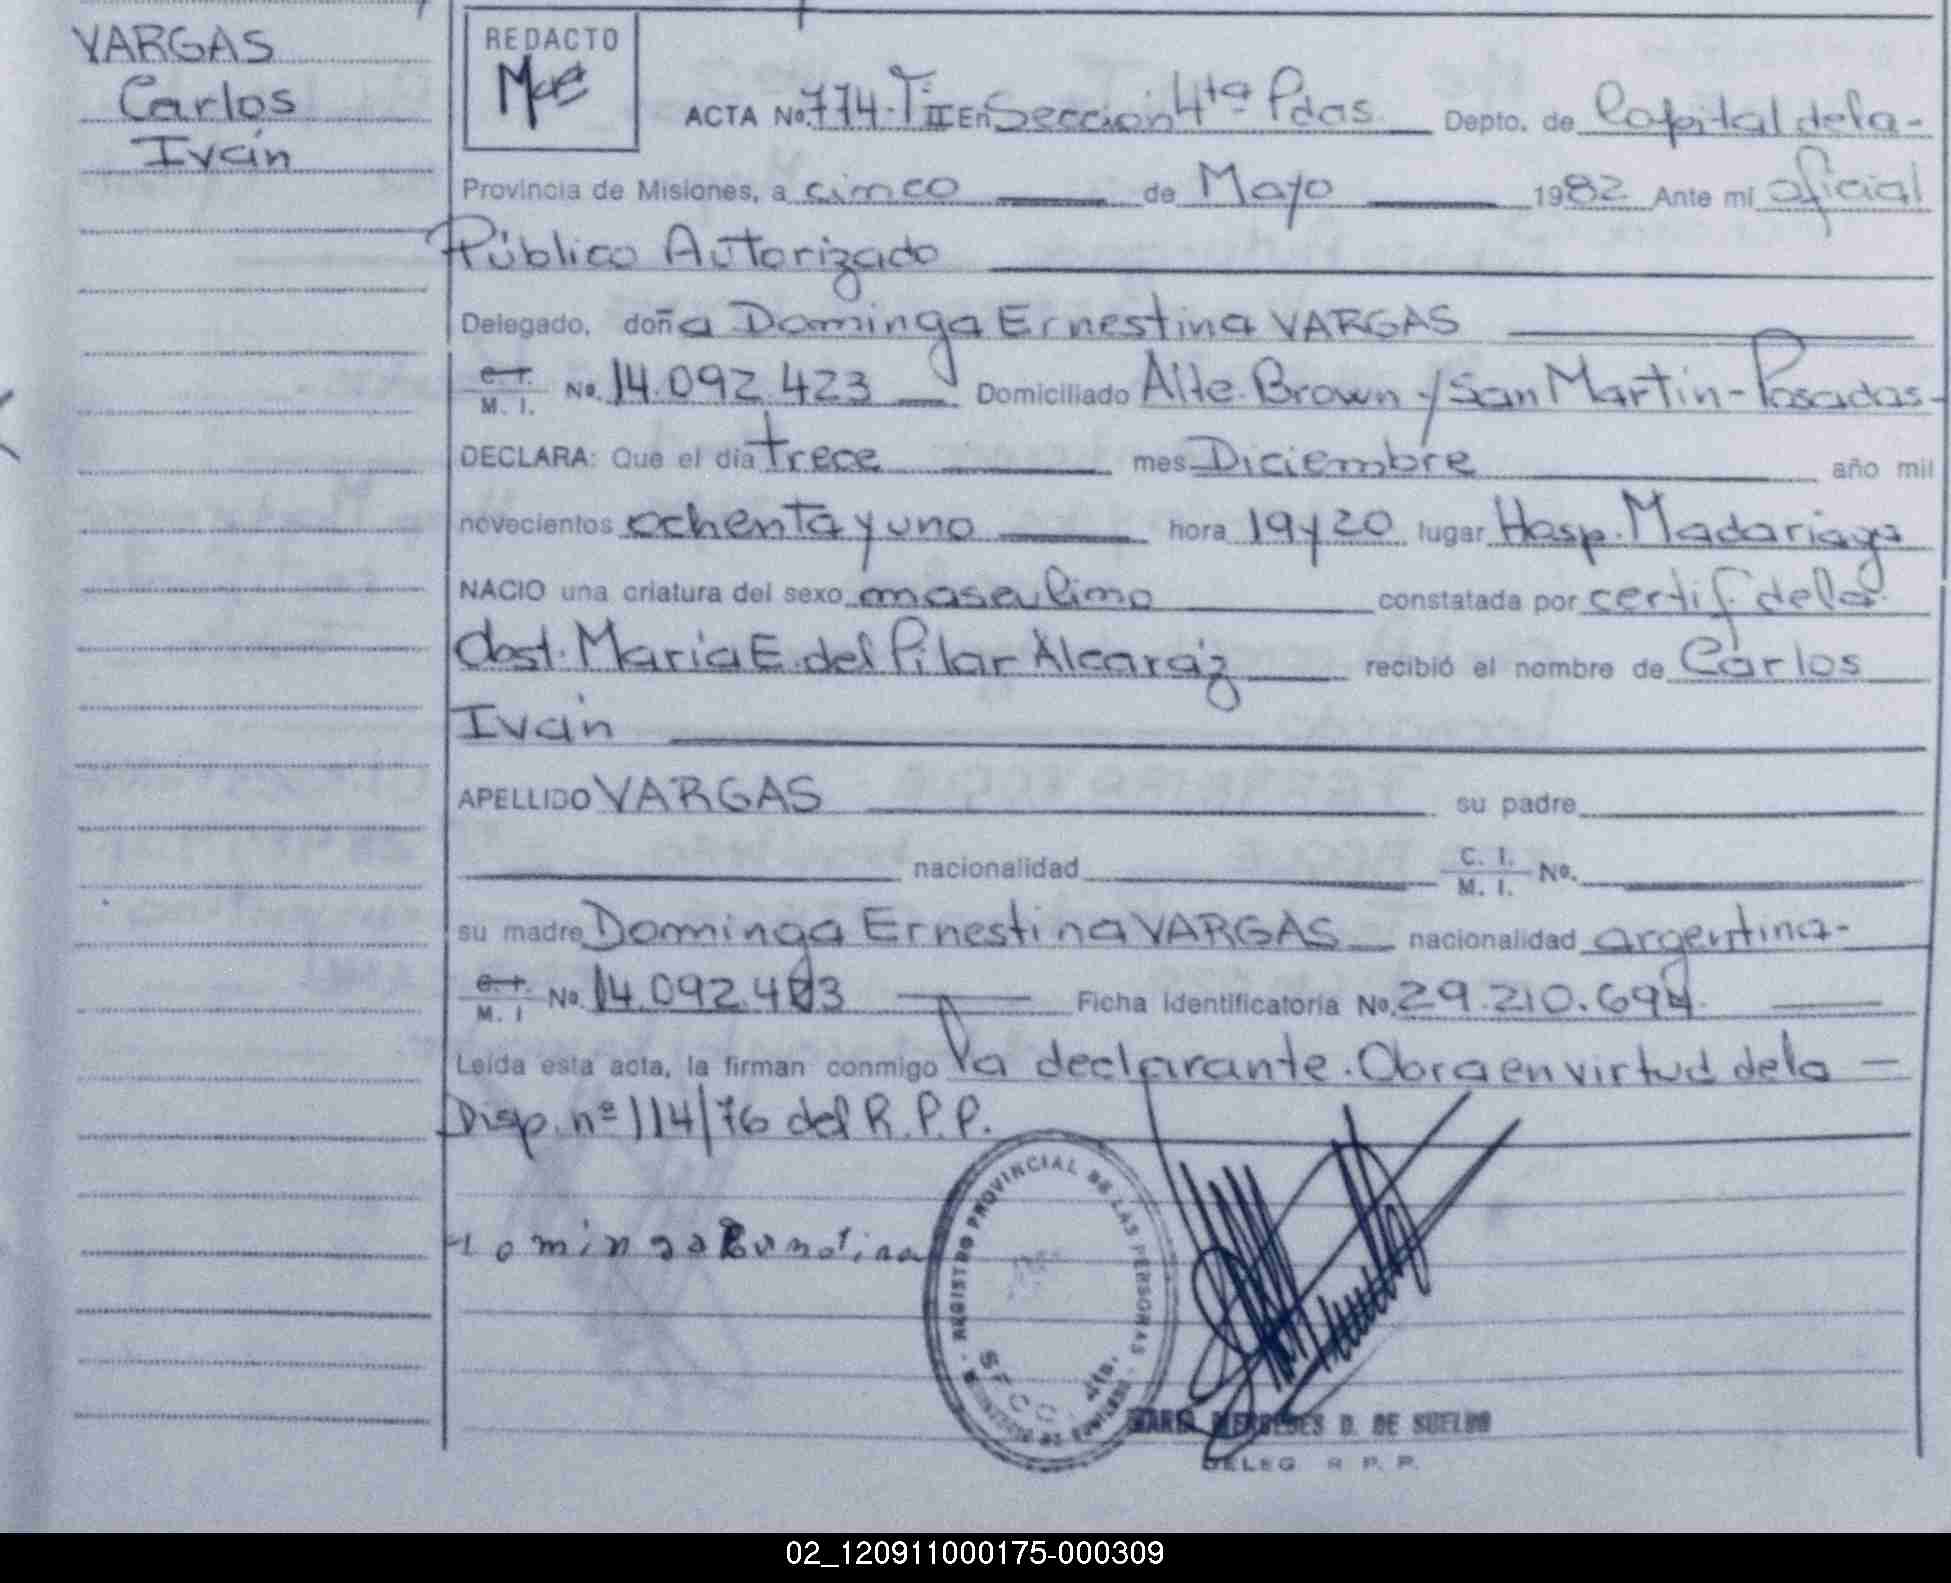 VARGAS
Carlos
Iván
REDACTO
ACTA No. 774-T II En Sección 4ta Pdas. Depto. de Capital de la-
Provincia de Misiones, a cinco de Mayo 1982 Ante mi oficial
Público Autorizado
Delegado, doña Dominga Ernestina VARGAS
C. I. M. I. No. 14.092.423 Domiciliado Alte. Brown y San Martín-Posadas-
DECLARA: Que el día trece mes Diciembre año mil
novecientos ochenta y uno hora 19 y 20 lugar Hosp. Madariaga
NACIO una criatura del sexo masculino constatada por certif. de la
Obst. María E. del Pilar Alcaráz recibió el nombre de Carlos
Iván
APELLIDO VARGAS su padre
nacionalidad C. I. M. I. No.
su madre Dominga Ernestina VARGAS nacionalidad argentina-
C. I. M. I No. 14.092.423 Ficha Identificatoria No. 29.210.694
Leida esta acta, la firman conmigo la declarante. Obra en virtud de la -
Disp. nº 114/76 del R.P.P.
REGISTRO PROVINCIAL DE LAS PERSONAS
SECC. 4ta.
MARIA MERCEDES D. DE SUELDO
DELEG R P. P.
02_120911000175-000309